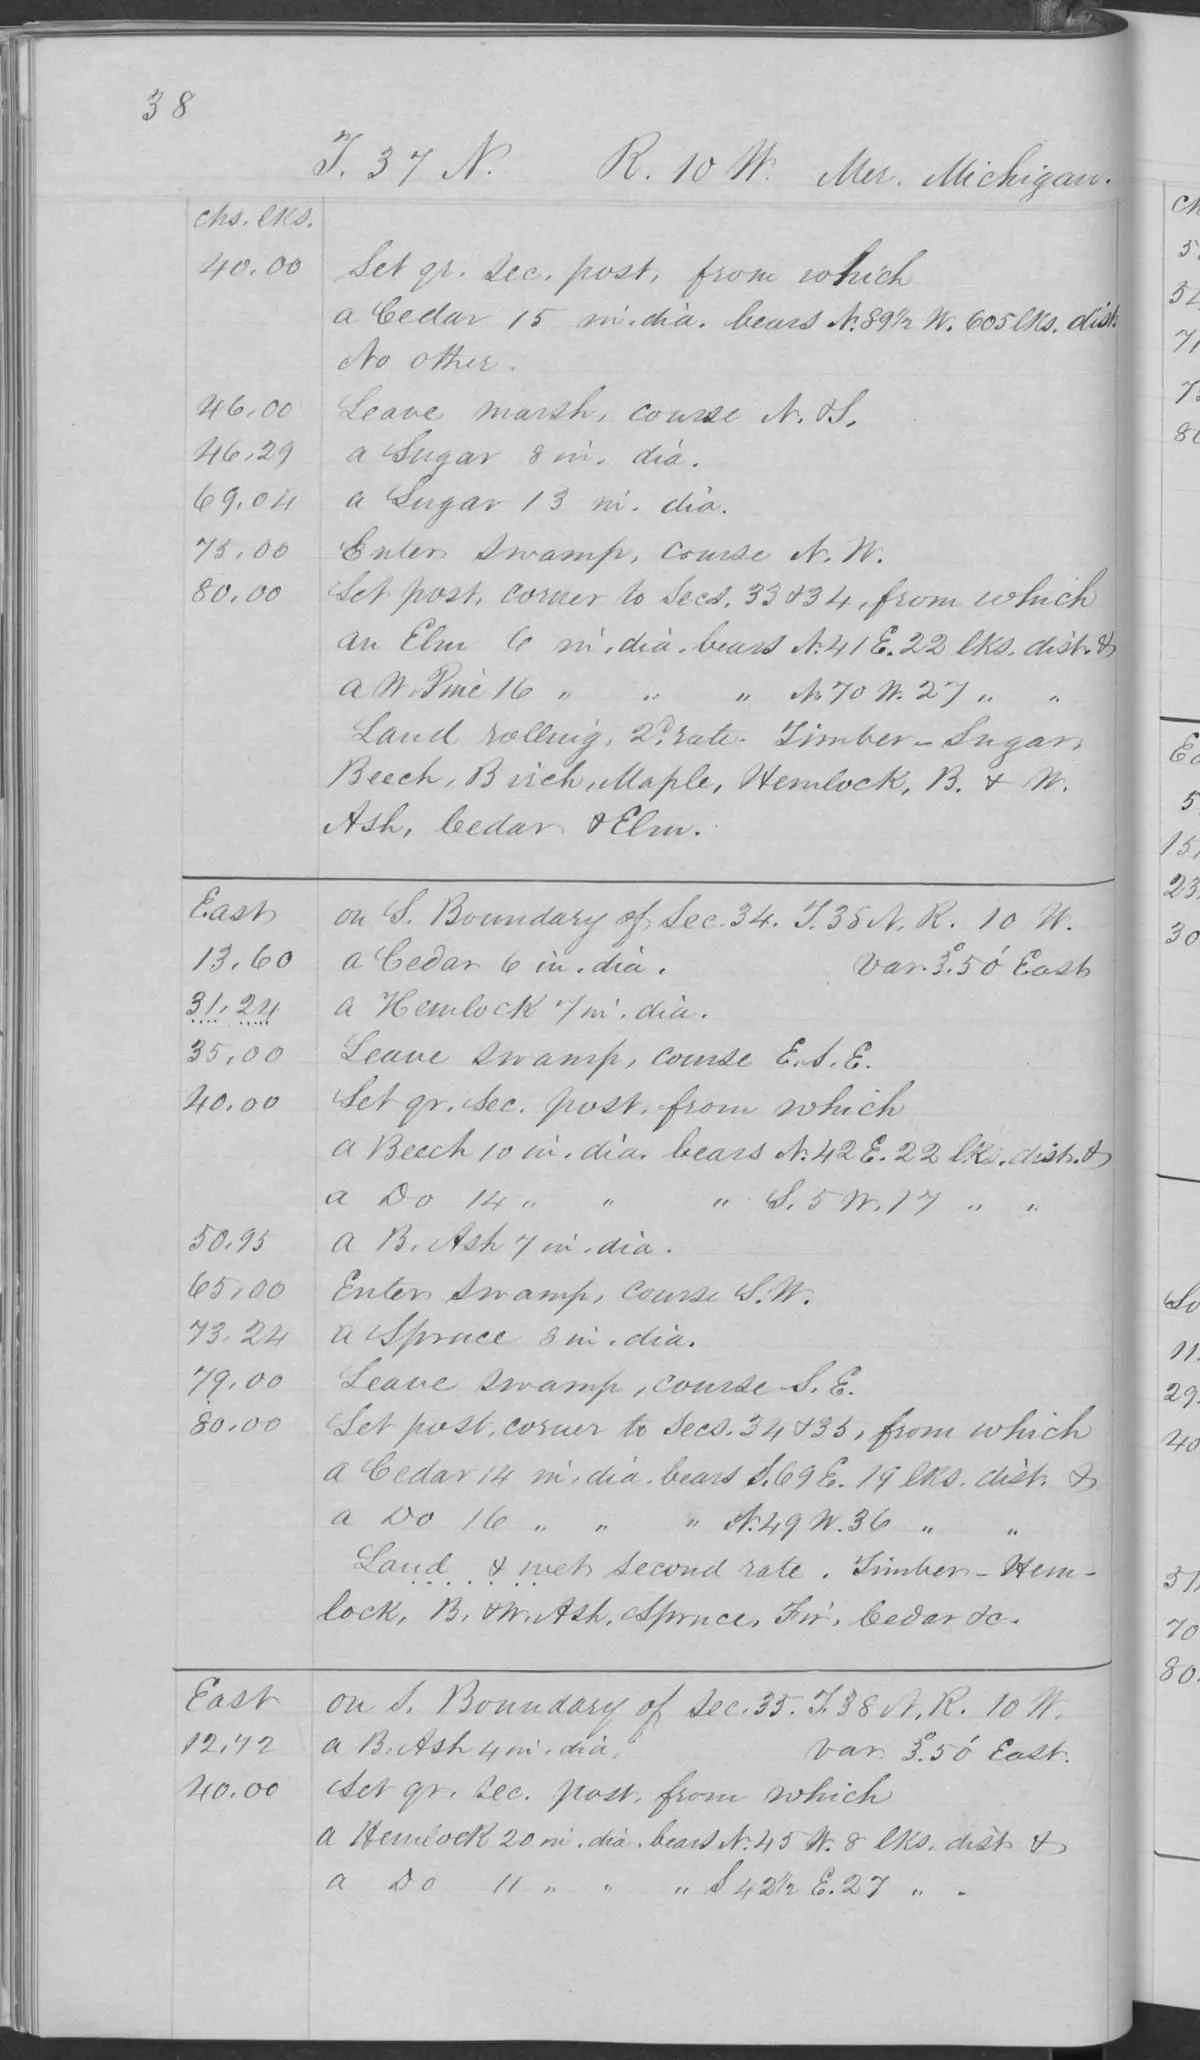 38
T. 37 N. R. 10 W. Mer. Michigan.
chs. lks.
40.00 Set qr. Sec. post, from which
a Cedar 15 in. dia. bears N. 89½ W. 605 lks. dist.
No other.
46.00 Leave marsh, course N. & S.
46.29 a Sugar 8 in. dia.
69.04 a Sugar 13 in. dia.
75.00 Enter swamp, course N. W.
80.00 Set post, corner to Secs. 33 & 34, from which
an Elm 6 in. dia. bears N. 41 E. 22 lks. dist. &
a W. Pine 16 " " " N. 70 W. 27 " "
Land rolling, 2d. rate. Timber - Sugar,
Beech, Birch, Maple, Hemlock, B. & W.
Ash, Cedar & Elm.
East on S. Boundary of Sec. 34. T. 38 N. R. 10 W.
13.60 a Cedar 6 in. dia. Var. 3°.50' East
31.24 a Hemlock 7 in. dia.
35.00 Leave swamp, course E. S. E.
40.00 Set qr. Sec. post, from which
a Beech 10 in. dia. bears N. 42 E. 22 lks. dist. &
a Do 14 " " " S. 5 W. 17 " "
50.95 a B. Ash 7 in. dia.
65.00 Enter swamp, course S. W.
73.24 a Spruce 8 in. dia.
79.00 Leave swamp, course S. E.
80.00 Set post, corner to Secs. 34 & 35, from which
a Cedar 14 in. dia. bears S. 69 E. 19 lks. dist. &
a Do 16 " " " N. 49 W. 36 " "
Land & wet second rate. Timber - Hem-
lock, B. & W. Ash, Spruce, Fir, Cedar &c.
East on S. Boundary of Sec. 35. T. 38 N. R. 10 W.
12.72 a B. Ash 4 in. dia. Var. 3°.50' East.
40.00 Set qr. Sec. post, from which
a Hemlock 20 in. dia. bears N. 45 W. 8 lks. dist &
a Do 11 " " " S 42½ E. 27 " "